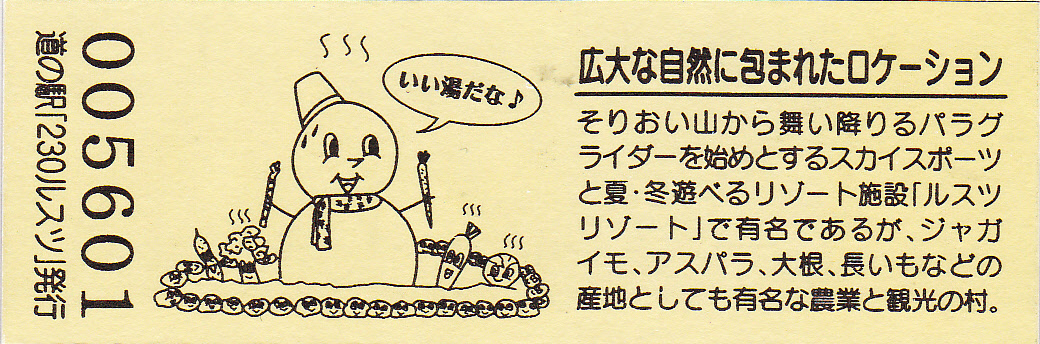 広大な自然に包まれたロケーション
そりおい山から舞い降りるパラグ
ライダーを始めとするスカイスポーツ
と夏・冬遊べるリゾート施設「ルスツ
リゾート」で有名であるが、ジャガ
イモ、アスパラ、大根、長いもなどの
産地としても有名な農業と観光の村。
いい湯だな♪
005601
道の駅「230ルスツ」発行